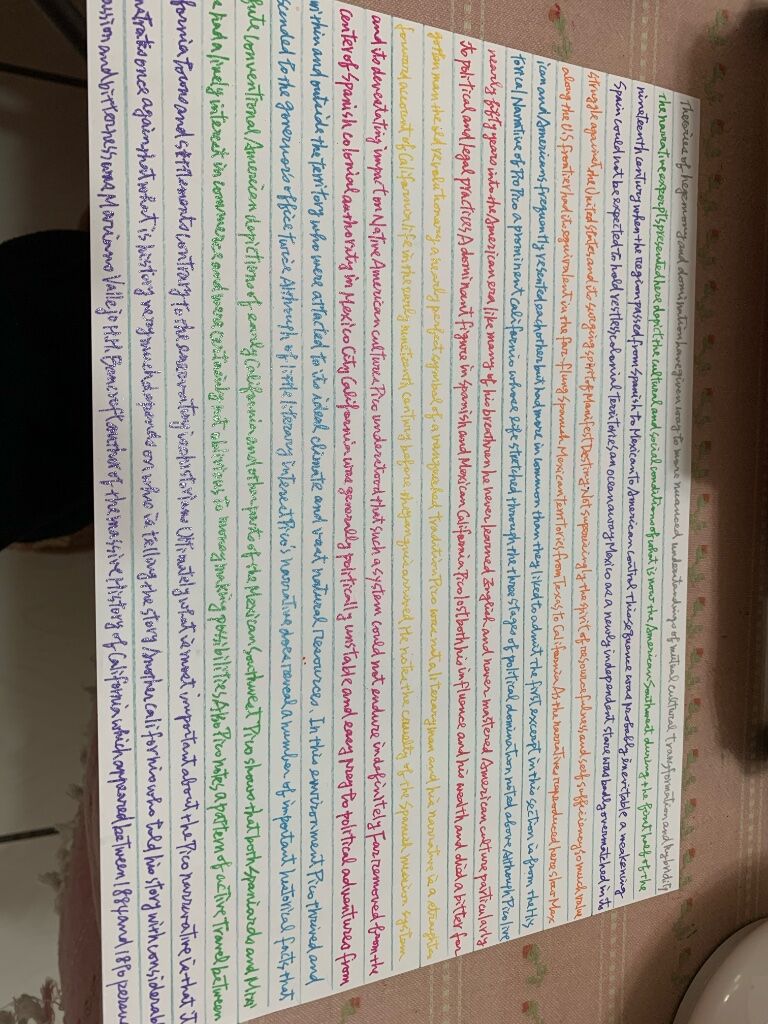 Theories of hegemony and domination have given way to more nuanced understandings of mutual cultural transformation and hybridity
The narrative excerpts presented here depict the cultural and social conditions of what is now the American Southwest during the first half of the
nineteenth century when the region passed from Spanish to Mexican to American control This sequence was probably inevitable a weakening
Spain could not be expected to hold restless colonial territories an ocean away Mexico as a newly independent state was badly overmatched in its
struggle against the United States and its surging spirit of Manifest Destiny Not surprisingly the spirit of resourcefulness and self sufficiency so much value
along the US frontier had its equivalent in the far-flung Spanish Mexican territories from Texas to California As the narratives reproduced here show Mex
icans and Americans frequently resented each other but had more in common than they liked to admit the first excerpt in this section is from the His
torical Narrative of Pio Pico a prominent Californio whose life stretched through the three stages of political domination noted above Although Pico live
nearly fifty years into the American era, like many of his brethren he never learned English and never mastered American culture particularly
its political and legal practices A dominant figure in Spanish and Mexican California Pico lost both his influence and his wealth and died a bitter for
gotten man the old revolutionary a nearly perfect symbol of a vanquished tradition Pico was not a literary man and his narrative is a straightfor
forward account of California life in the early nineteenth century before the yanquis arrived, He notes the cruelty of the Spanish mission system
and its devastating impact on Native American culture Pico understood that such a system could not endure indefinitely Far removed from the
center of Spanish colonial authority in Mexico City California was generally politically unstable and easy prey to political adventurers from
within and outside the territory who were attracted to its ideal climate and vast natural resources. In this environment Pico thrived and
scended to the governors office twice Although of little literary interest Pico's narrative does reveal a number of important historical facts that
gate conventional American depictions of early California and other parts of the Mexican Southwest Pico shows that both Spaniards and Mexi
s had a lively interest in commerce and were certainly not oblivious to money making possibilities, Also Pico notes a pattern of active Travel between
fornia towns and settlements contrary to the Ultimately what is most important about the Pico narrative is that it
nstrates once again that what is history very much depends on who is telling the story Another californio who told his story with considerabl
assion and bitterness was Mariano Vallejo H.H. Bancroft author of the massive History of California which appeared between 1884 and 1890 persua